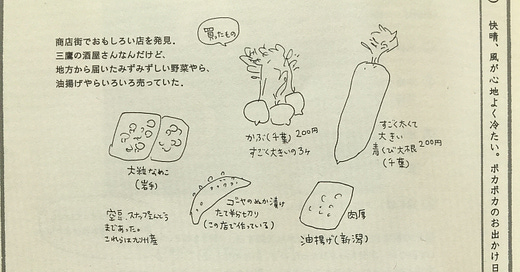 快晴、風が心地よく冷たい。ポカポカのお出かけ日
商店街でおもしろい店を発見.
三鷹の酒屋さんなんだけど、
地方から届いたみずみずしい野菜やら、
油揚げやらいろいろ売っていた.
買ったもの
かぶ(千葉) 200円
すごく大きいの3ヶ
すごく太くて
大きい
青くび大根 200円
(千葉)
大粒なめこ
(岩手)
ゴーヤのぬか漬け
たて半分も切り
(この店で作っている)
肉厚
油揚げ(新潟)
空豆、スナップえんどう
まであった。
これらは九州産